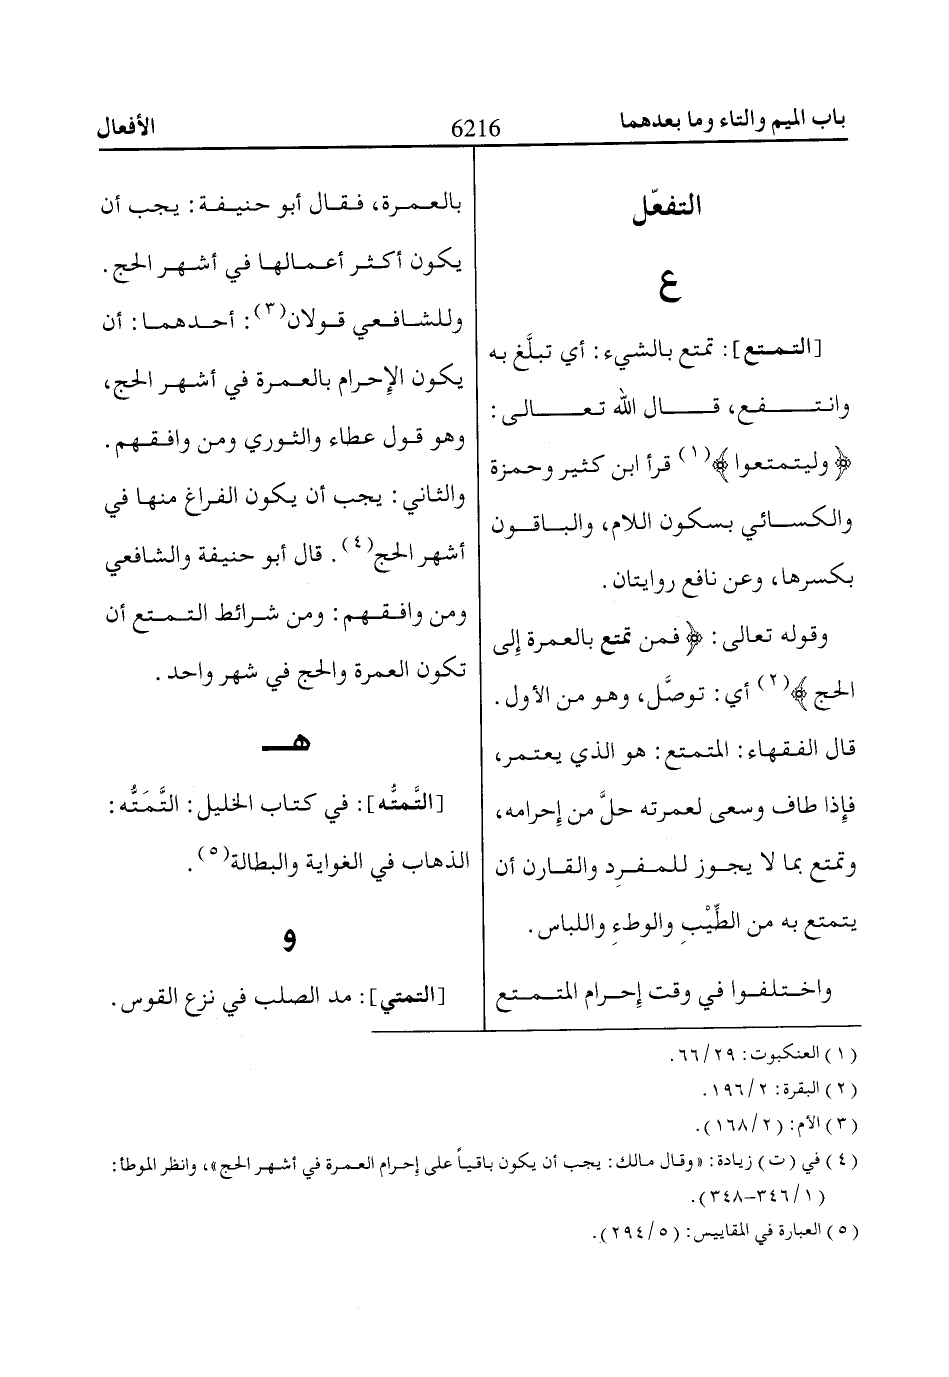 باب الميم والتاء وما بعدهما
6216
الأفعال
التفعّل
ع
[التمتع]: تمتع بالشيء: أي تبلَّغ به
وانتفع، قال الله تعالى:
﴿وليتمتعوا﴾(١) قرأ ابن كثير وحمزة
والكسائي بسكون اللام، والباقون
بكسرها، وعن نافع روايتان.
وقوله تعالى: ﴿فمن تمتع بالعمرة إلى
الحج﴾(٢) أي: توصَّل، وهو من الأول.
قال الفقهاء: المتمتع: هو الذي يعتمر،
فإذا طاف وسعى لعمرته حلَّ من إحرامه،
وتمتع بما لا يجوز للمفرِد والقارن أن
يتمتع به من الطِّيْبِ والوطءِ واللباس.
واختلفوا في وقت إحرام المتمتع
بالعمرة، فقال أبو حنيفة: يجب أن
يكون أكثر أعمالها في أشهر الحج.
وللشافعي قولان(٣): أحدهما: أن
يكون الإحرام بالعمرة في أشهر الحج،
وهو قول عطاء والثوري ومن وافقهم.
والثاني: يجب أن يكون الفراغ منها في
أشهر الحج(٤). قال أبو حنيفة والشافعي
ومن وافقهم: ومن شرائط التمتع أن
تكون العمرة والحج في شهر واحد.
هـ
[التَّمتُّه]: في كتاب الخليل: التَّمَتُّه:
الذهاب في الغواية والبطالة(٥).
و
[التمتي]: مد الصلب في نزع القوس.
(١) العنكبوت: ٢٩/٦٦.
(٢) البقرة: ٢/١٩٦.
(٣) الأم: (٢/١٦٨).
(٤) في (ت) زيادة: «وقال مالك: يجب أن يكون باقياً على إحرام العمرة في أشهر الحج»، وانظر الموطأ:
(١/٣٤٦-٣٤٨).
(٥) العبارة في المقاييس: (٥/٢٩٤).